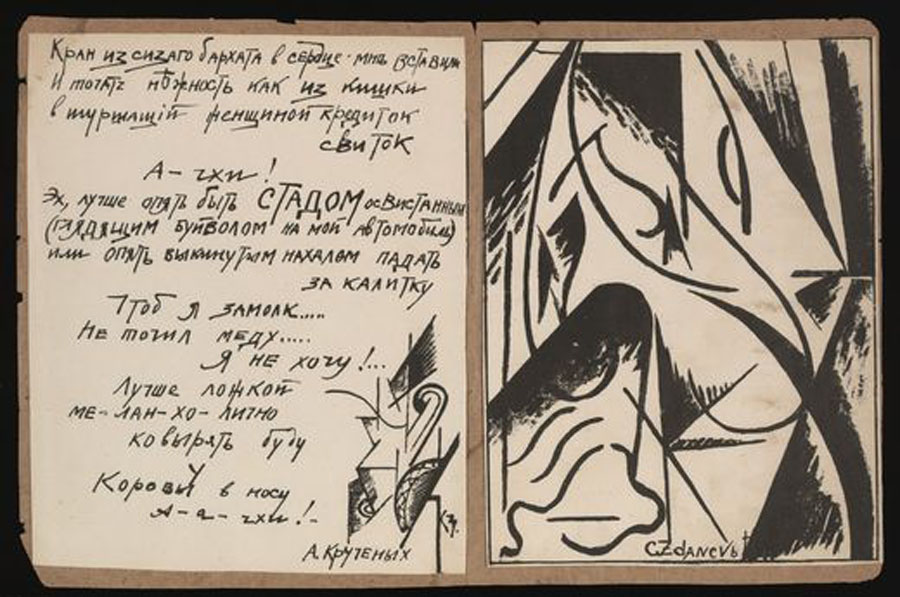 Кран из сизаго бархата в сердце мнѣ вставили
И точать нѣжность как из кишки
в шуршащій женщиной кредиток
свиток
А-чхи!
Эх, лучше опять быть СТАДОМ освистанным
(глядящим буйволом на мой автомобиль)
или опять выкинутым нахалом падать
за калитку
Чтоб я замолк.....
Не точил меду.....
Я не хочу!...
Лучше ложкой
ме-лан-хо-лично
ковырять буду
Коровы в носу
А-а-чхи!-
А. Крученых
C. Zdanevь